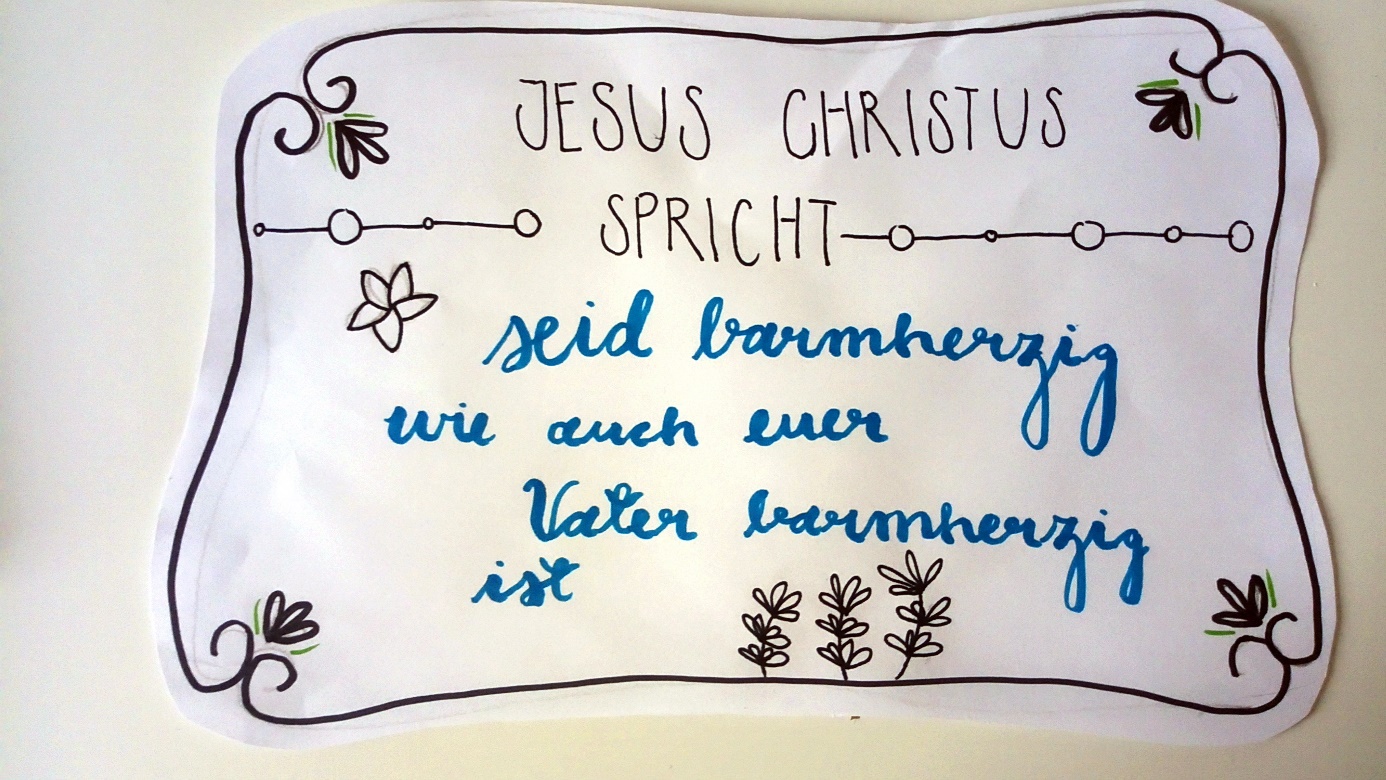 JESUS CHRISTUS
SPRICHT
seid barmherzig
wie auch euer
Vater barmherzig
ist